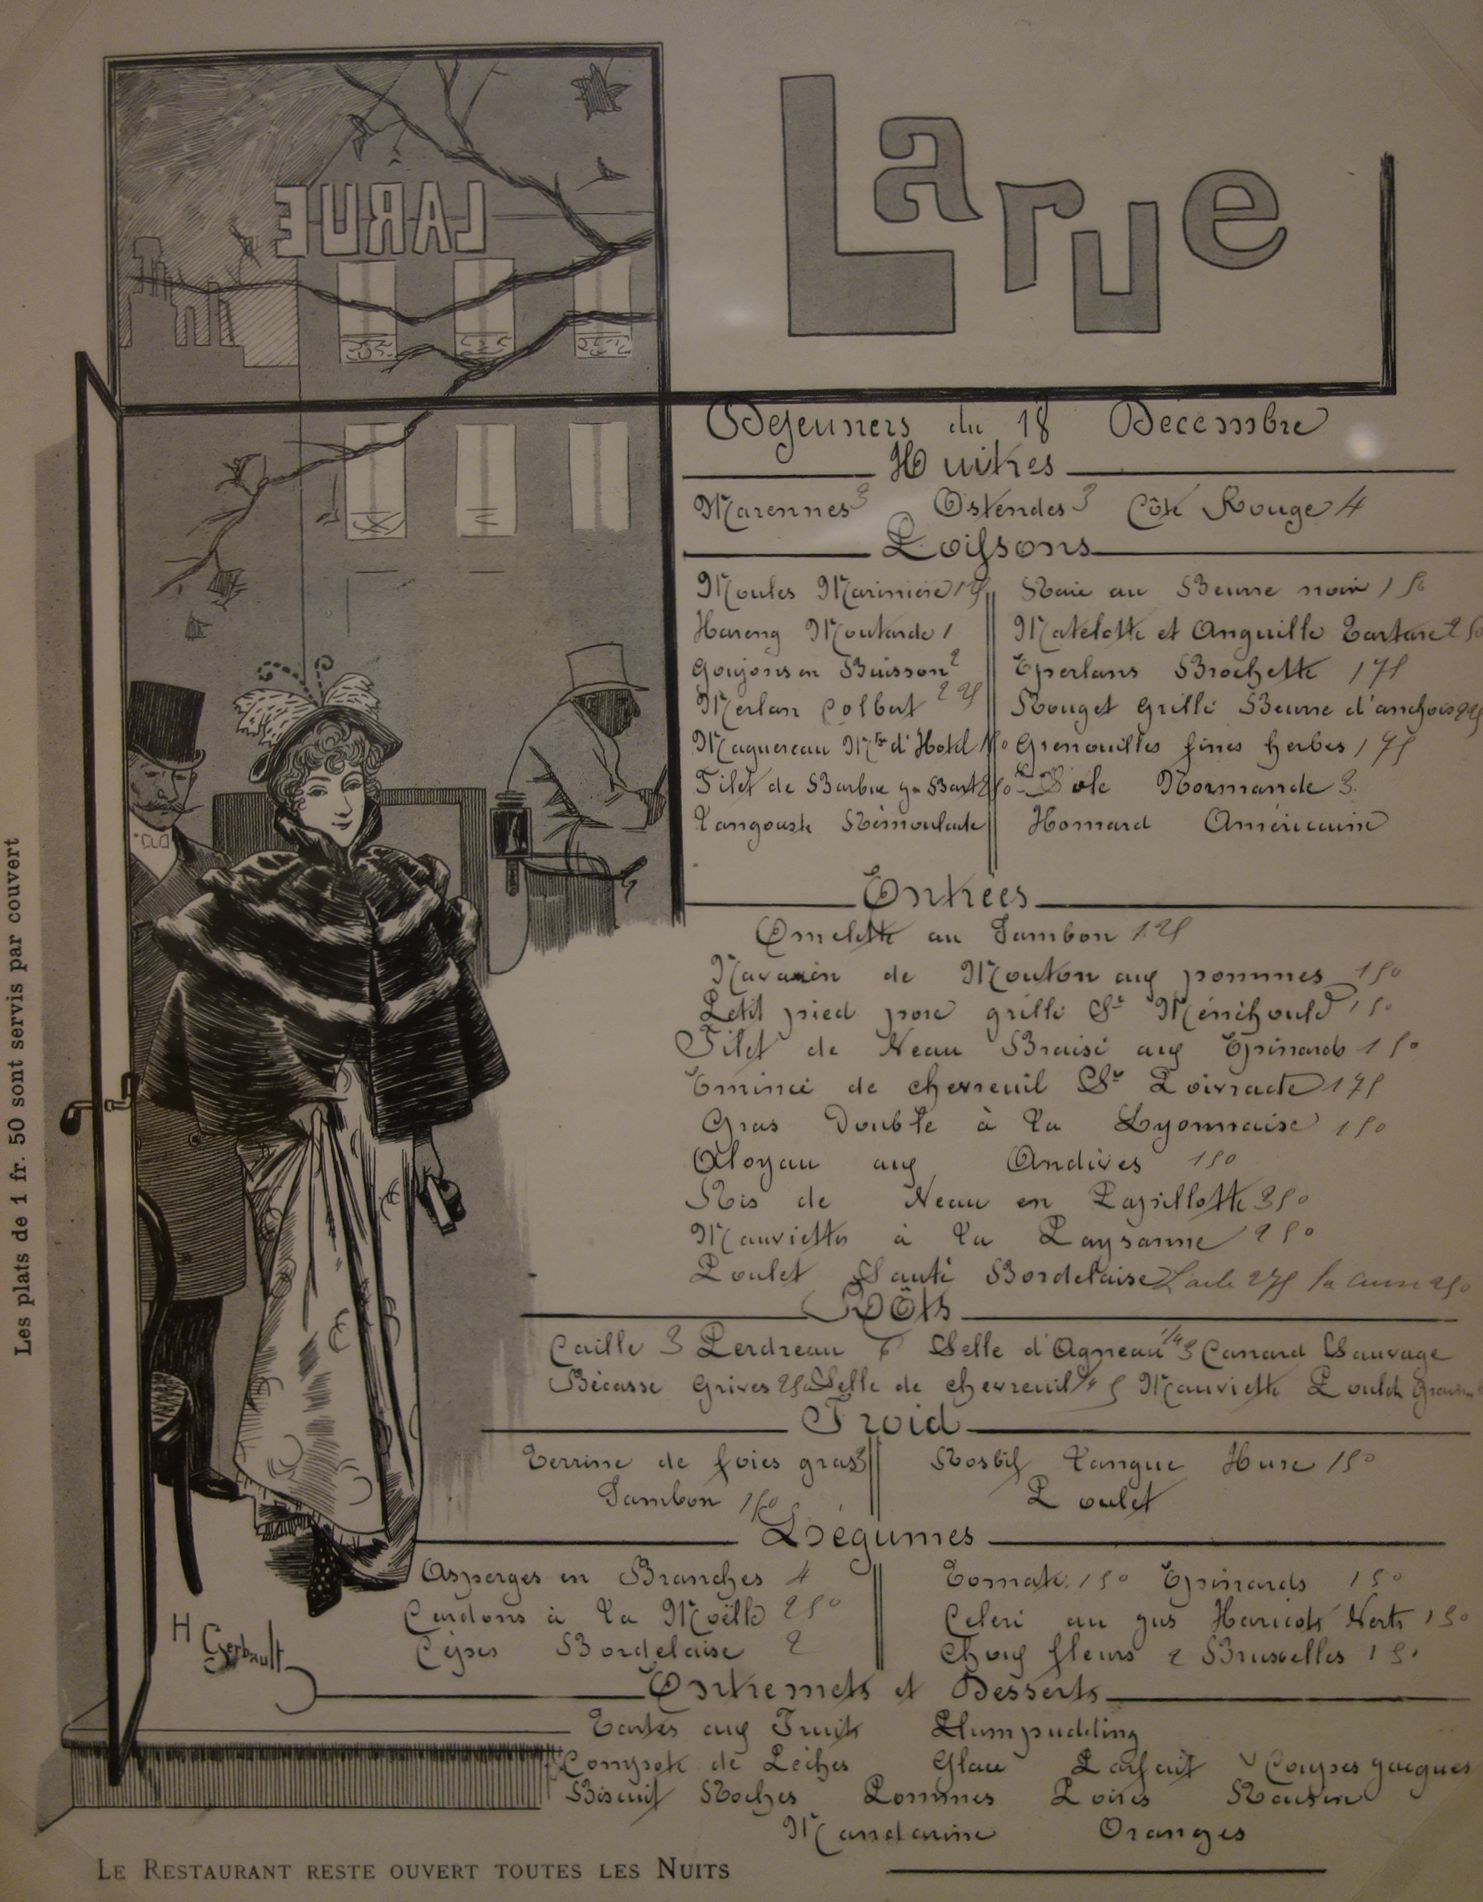 Larue
LARUE
Déjeuners du 18 Décembre
Huitres
Marennes 3 Ostendes 3 Côte Rouge 4
Poissons
Moules Marinière 1 25 Raie au Beurre noir 1 50
Hareng Moutarde 1 Matelotte et Anguille Tartare 2 50
Goujons en Buisson 2 Eperlans Brochette 1 75
Merlan Colbert 2 25 Rouget Grillé Beurre d'anchois 2 25
Maquereau Mtre d'Hotel Grenouilles fines herbes 1 75
Filet de Barbue Sole Normande 3
Langouste Rémoulade Homard Américaine
Entrées
Omelette au Jambon 1.25
Navarin de Mouton aux pommes 1 50
Petit pied porc grillé Ste Ménéhould 1 50
Filet de Veau Braisé aux Epinards 1 50
Emincé de chevreuil Sce Poivrade 1 75
Gras Double à la Lyonnaise 1 50
Aloyau aux Andives 1 50
Ris de Veau en Papillotte 3 50
Mauviettes à la Paysanne 2 50
Poulet Sauté Bordelaise L'aile 2 75 la cuisse 2 50
Rôts
Caille 3 Perdreau 6 Selle d'Agneau 1/4 3 Canard Sauvage
Bécasse Grives 2 50 Selle de chevreuil 1/4 5 Mauviette Poulet Grain
Froid
Terrine de foies gras 3 Rosbif Langue Hure 1 50
Jambon 1 50 Poulet
Légumes
Asperges en Branches 4 Tomate 1 50 Epinards 1 50
Cardons à la Moëlle 2 50 Celeri au jus Haricots Verts 1 50
Cèpes Bordelaise 2 Choux fleurs 2 Bruxelles 1 50
Entremets et Desserts
Tartes aux Fruits Plumpudding
Compote de Pêches Glace Parfait Coupes Jacques
Biscuit Roches Pommes Poires Raisin
Mandarine Oranges
H Gerbault
Les plats de 1 fr. 50 sont servis par couvert
LE RESTAURANT RESTE OUVERT TOUTES LES NUITS